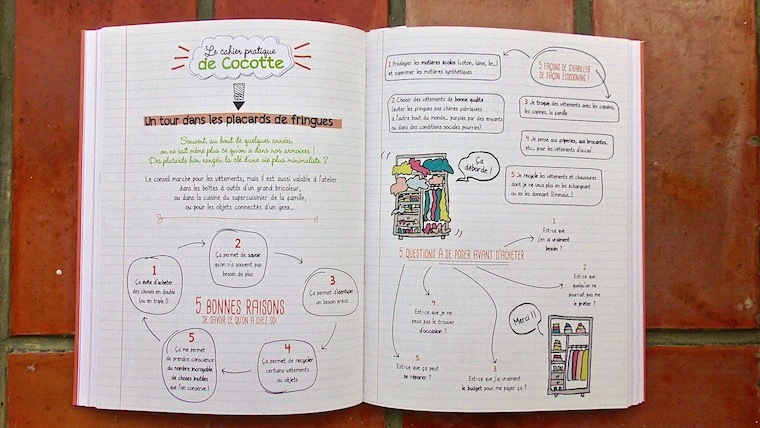 Le cahier pratique
de Cocotte
Un tour dans les placards de fringues
Souvent, au bout de quelques années,
on ne sait même plus ce qu'on a dans nos armoires !
Des placards bien rangés, la clé d'une vie plus minimaliste ?
Le conseil marche pour les vêtements, mais il est aussi valable à l'atelier
dans les boîtes à outils d'un grand bricoleur,
ou dans la cuisine du supercuisinier de la famille,
ou pour les objets connectés d'un geek...
1
Ça évite d'acheter
des choses en double
(ou en triple !)
2
Ça permet de savoir
qu'on n'a souvent pas
besoin de plus
3
Ça permet d'identifier
un besoin précis
4
Ça permet de recycler
certains vêtements
ou objets
5
Ça me permet
de prendre conscience
du nombre incroyable
de choses inutiles
que l'on conserve !
5 BONNES RAISONS
DE SAVOIR CE QU'ON A CHEZ SOI
5 FAÇONS DE S'HABILLER
DE FAÇON ÉCOCOONING !
1 Privilégier les matières écolos (coton, laine, lin...)
et supprimer les matières synthétiques
2 Choisir des vêtements de bonne qualité
(éviter les fringues pas chères fabriquées
à l'autre bout du monde... parfois par des enfants
ou dans des conditions sociales pourries)
3 Je troque des vêtements avec les copains,
les copines, la famille
4 Je pense aux friperies, aux brocantes,
etc., pour les vêtements d'occas'
5 Je recycle les vêtements et chaussures
dont je ne veux plus en les échangeant
ou en les donnant (Emmaüs...)
Ça
déborde !
5 QUESTIONS À SE POSER AVANT D'ACHETER
1
Est-ce que
j'en ai vraiment
besoin ?
2
Est-ce que
quelqu'un ne
pourrait pas me
le prêter ?
3
Est-ce que j'ai vraiment
le budget pour me payer ça ?
4
Est-ce que je ne
peux pas le trouver
d'occasion ?
5
Est-ce que ça peut
se réparer ?
Merci !!